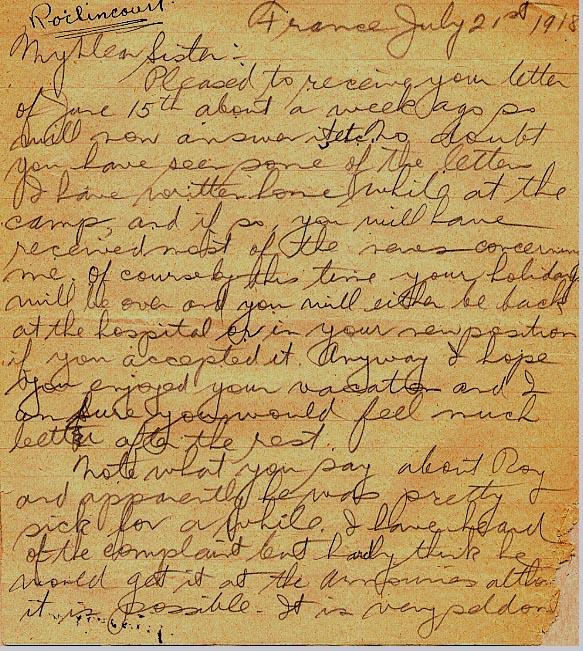 Roilincourt
France July 21st 1918
My Dear Sister:-
Pleased to receive your letter
of June 15th about a week ago so
will now answer No doubt
you have seen some of the letters
I have written home while at the
camp, and if so, you will have
received most of the news concerning
me. of course by this time your holiday
will be over and you will either be back
at the hospital or in your new position
if you accepted it. Anyway I hope
you enjoyed your vacation and I
am sure you would feel much
better after the rest.
Note what you say about Roy
and apparently he was pretty
sick for a while. I have heard
of the complaint but hardly think he
would get it at the armouries altho
it is possible. It is very seldom